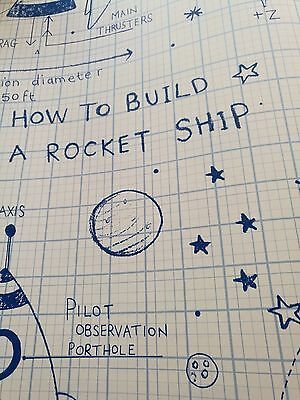 MAIN
THRUSTERS
+Z
ion diameter
50ft
HOW TO BUILD
A ROCKET SHIP
AXIS
PILOT
OBSERVATION
PORTHOLE